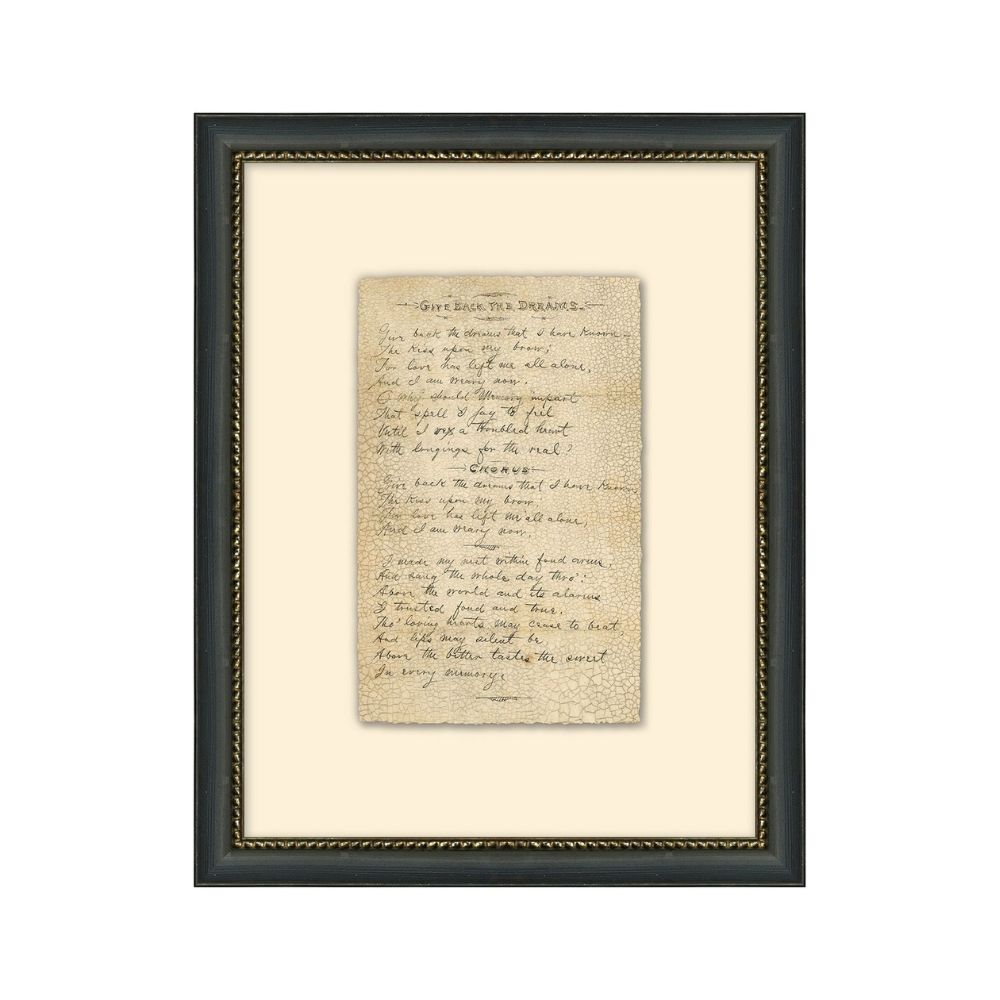 GIVE BACK THE DREAMS.
Give back the dreams that I have known—
The kiss upon my brow;
For love has left me all alone,
And I am weary now.
O why should Memory impart
That spell I pay to feel
Until I a troubled heart
With longings for the real?
CHORUS
Give back the dreams that I have known,
The kiss upon my brow.
For love has left me all alone,
And I am weary now.
I made my nest within fond arms,
And sang the whole day thro':
Above the world and its alarms
I trusted fond and true.
Tho' loving hearts may cease to beat,
And lips may silent be,
Above the bitter tastes the sweet
In every memory.